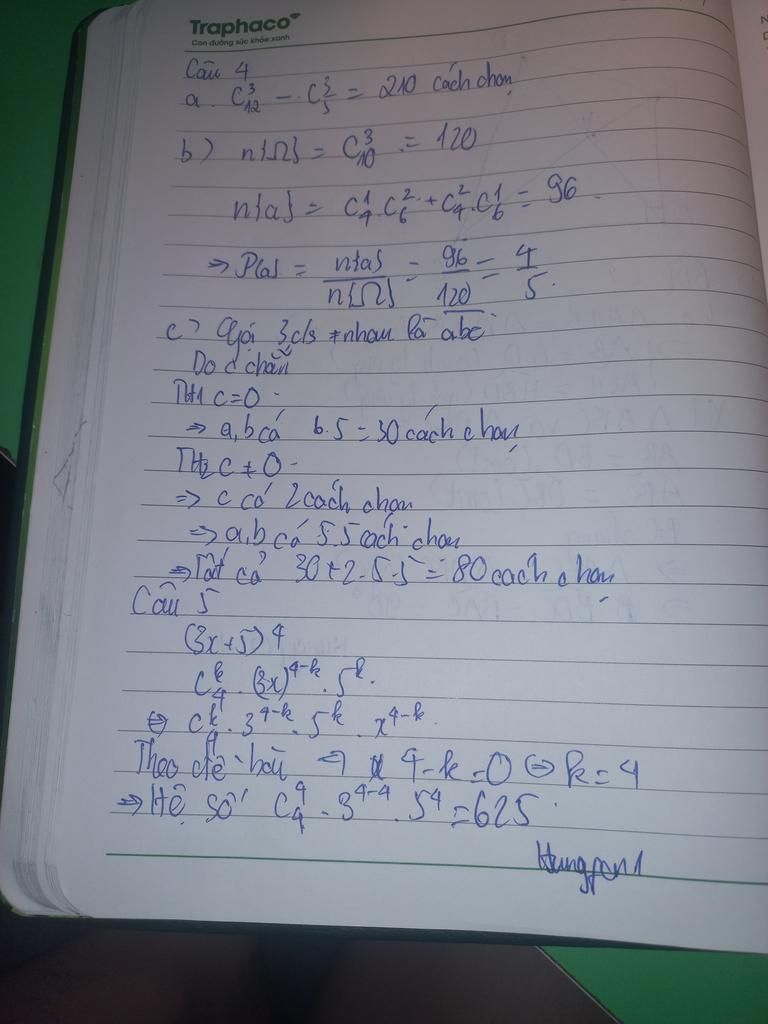 Traphaco
Con đường sức khỏe xanh
Câu 4
a. C₁₂³ - C₅³ = 210 cách chọn
b) n{Ω} = C₁₀³ = 120
n{a} = C₄¹.C₆² + C₄².C₆¹ = 96
⇒ P{a} = n{a}/n{Ω} = 96/120 = 4/5.
c) Gọi 3 c/s ≠ nhau là abc
Do c chẵn
TH1 c=0
⇒ a,b có 6.5 = 30 cách chọn
TH2 c ≠ 0
⇒ c có 2 cách chọn
⇒ a,b có 5.5 cách chọn
⇒ Tất cả 30+2.5.5 = 80 cách chọn
Câu 5
(3x+5)⁴
C₄ᵏ.(3x)⁴⁻ᵏ.5ᵏ.
⇔ C₄ᵏ.3⁴⁻ᵏ.5ᵏ.x⁴⁻ᵏ.
Theo đề bài ⇒ 4-k=0 ⇔ k=4
⇒ Hệ số C₄⁴.3⁴⁻⁴.5⁴ = 625.